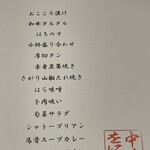 おこころ漬け
和牛タルタル
はちのす
今鉢盛り合わせ
厚切タン
赤身炭茶焼き
さがり山椒たれ焼き
はら味噌
を肉吸い
旬菜サラダ
シャトーブリアン
馬骨スープカレー